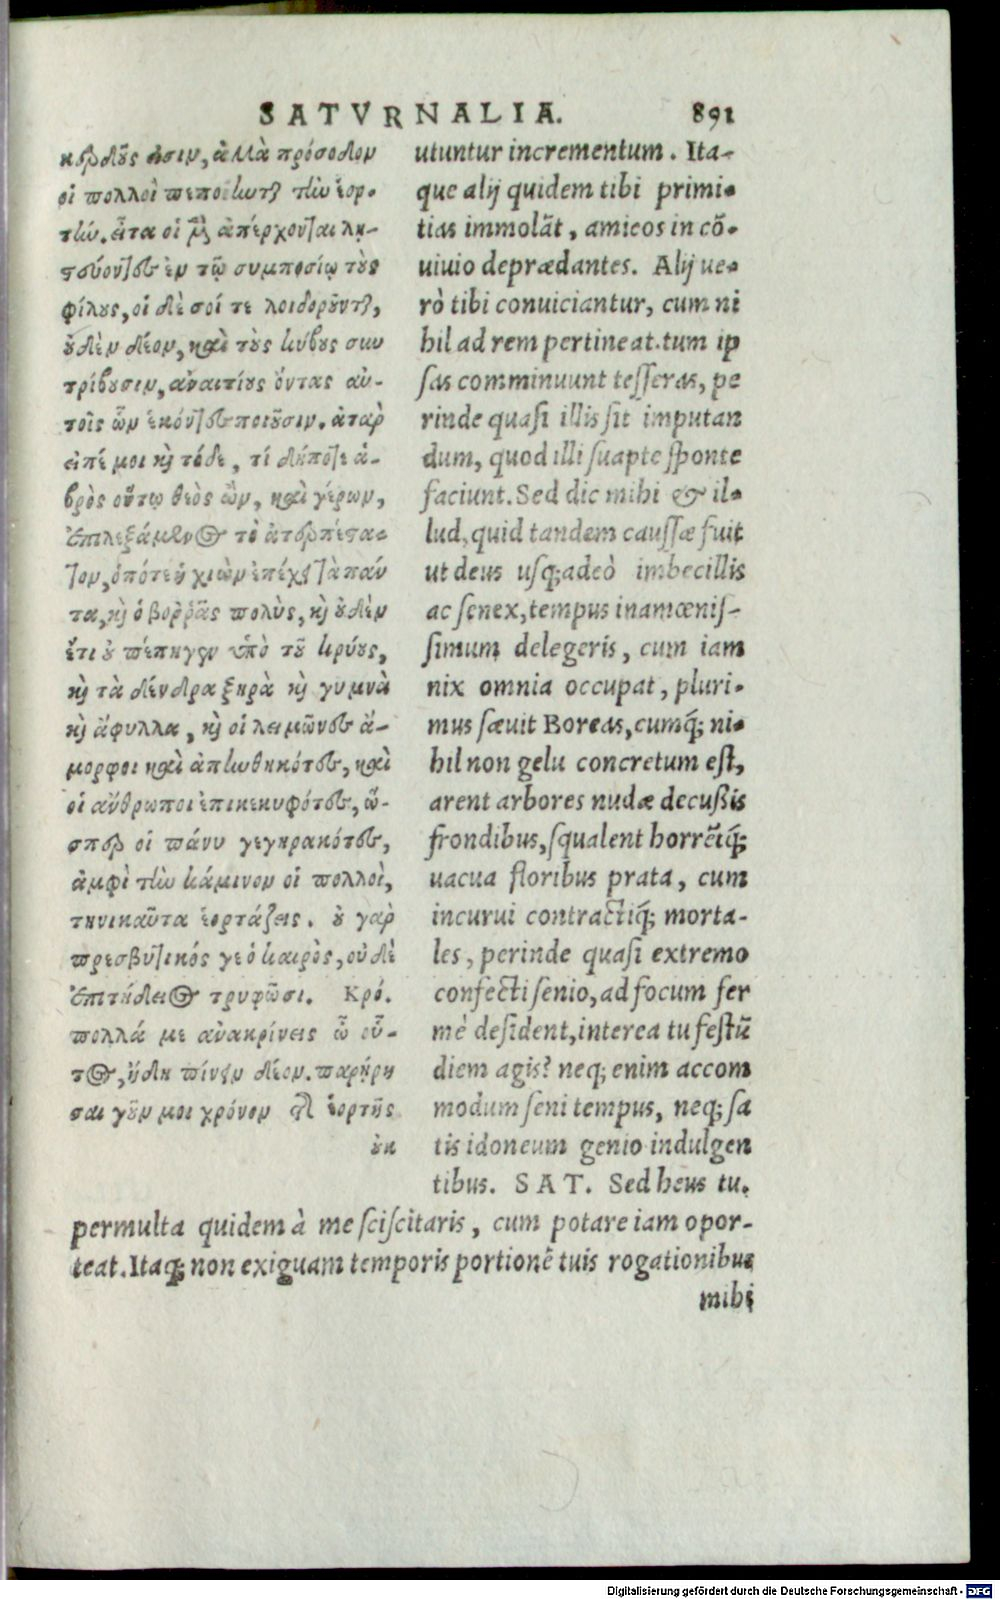 SATVRNALIA. 891
κερδοῦς εἰσιν, ἀλλὰ πρόσοδον
οἱ πολλοὶ πεποίηνται τὴν ἑορ-
τήν. εἶτα οἱ μὲν ἀπέρχονται λη-
στεύοντες ἐν τῷ συμποσίῳ τοὺς
φίλους, οἱ δὲ σοί τε λοιδοροῦνται,
οὐδὲν δέον, καὶ τοὺς κύβους συν
τρίβουσιν, ἀναιτίους ὄντας αὐ-
τοῖς ὧν ἑκόντες ποιοῦσιν. ἀτὰρ
εἰπέ μοι καὶ τόδε, τί δήποτε ἁ-
βρὸς οὕτω θεὸς ὢν, καὶ γέρων,
ἐπιλεξάμενος τὸ ἀτερπέστα-
τον, ὁπότε ἡ χιὼν ἐπέχει τὰ πάν
τα, καὶ ὁ βοῤῥᾶς πολὺς, καὶ οὐδὲν
ἔτι οὐ πέπηγεν ὑπὸ τοῦ κρύους,
καὶ τὰ δένδρα ξηρὰ καὶ γυμνὰ
καὶ ἄφυλλα, καὶ οἱ λειμῶνες ἄ-
μορφοι καὶ ἀπηνθηκότες, καὶ
οἱ ἄνθρωποι ἐπικεκυφότες, ὥ-
σπερ οἱ πάνυ γεγηρακότες,
ἀμφὶ τὴν κάμινον οἱ πολλοὶ,
τηνικαῦτα ἑορτάζεις. οὐ γαρ
πρεσβυτικός γε ὁ καιρὸς, οὐδὲ
ἐπιτήδειος τρυφῶσι. Κρό.
πολλά με ἀνακρίνεις ὦ οὗ-
τος, ἤδη πίνειν δέον. παρῄρη
σαι γοῦν μοι χρόνον τῆς ἑορτῆς
οὐκ
utuntur incrementum. Ita-
que alij quidem tibi primi-
tias immolāt, amicos in cō-
uiuio deprædantes. Alij ue-
rò tibi conuiciantur, cum ni
hil ad rem pertineat. tum ip
sas comminuunt tesseras, pe
rinde quasi illis sit imputan
dum, quod illi suapte sponte
faciunt. Sed dic mihi & il-
lud, quid tandem caussæ fuit
ut deus usq; adeò imbecillis
ac senex, tempus inamœnis-
simum delegeris, cum iam
nix omnia occupat, pluri-
mus sæuit Boreas, cumq́; ni-
hil non gelu concretum est,
arent arbores nudæ decußis
frondibus, squalent horrētq́;
uacua floribus prata, cum
incurui contractiq́; morta-
les, perinde quasi extremo
confecti senio, ad focum fer
mè desident, interea tu festū
diem agis? neq; enim accom
modum seni tempus, neq; sa
tis idoneum genio indulgen
tibus. SAT. Sed heus tu.
permulta quidem à me sciscitaris, cum potare iam opor-
teat. Itaq; non exiguam temporis portionē tuis rogationibus
mihi
Digitalisierung gefördert durch die Deutsche Forschungsgemeinschaft - DFG